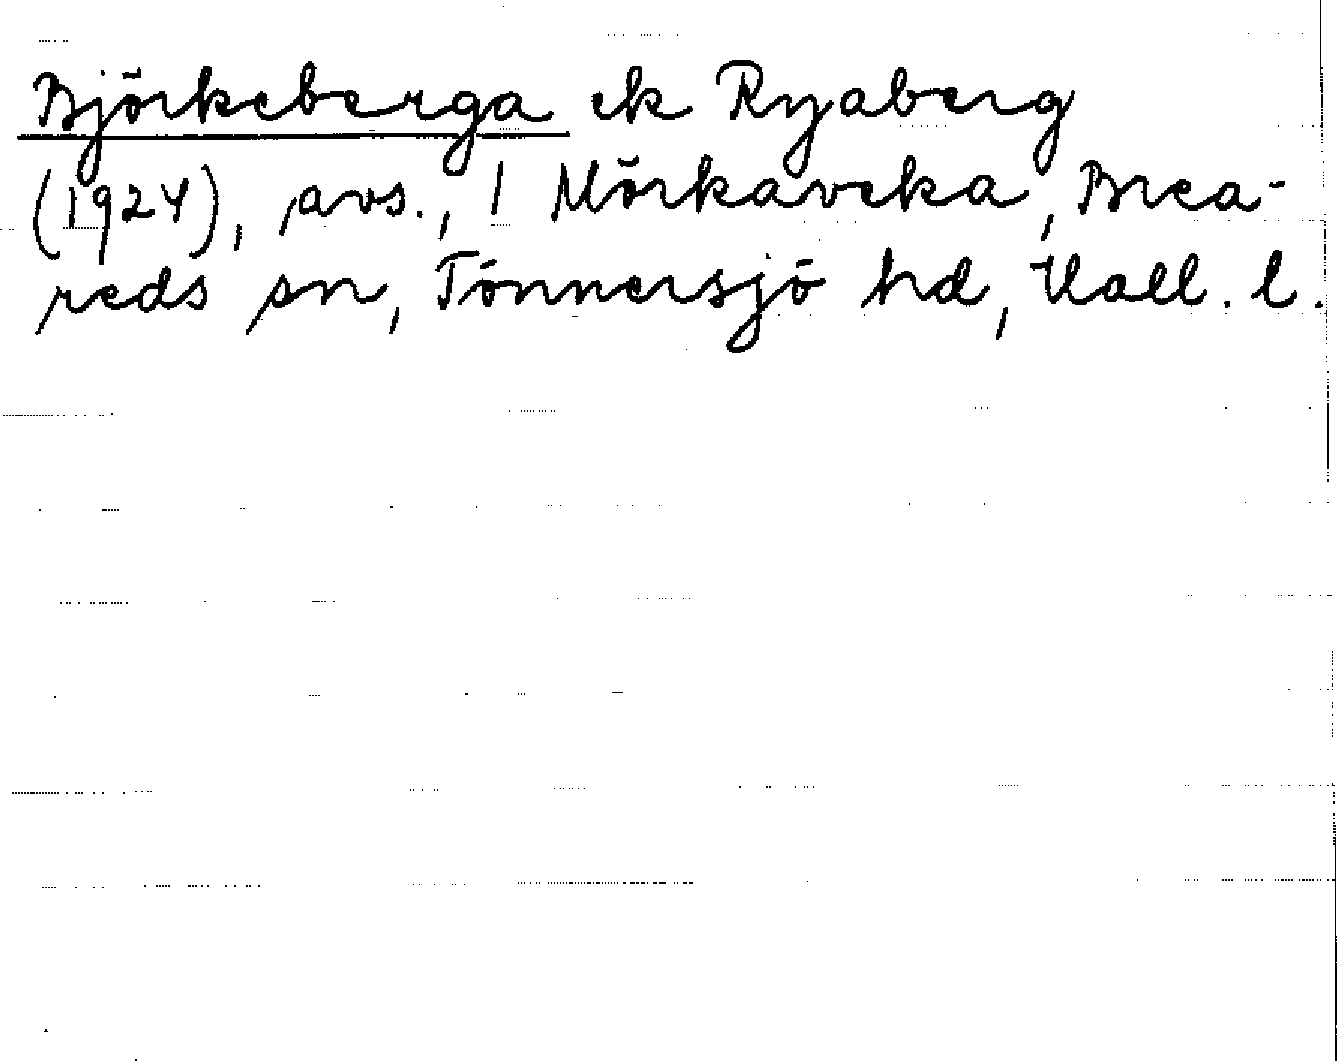 Björkeberga ek Ryaberg
(1924), avs., 1 Mörkaveka, Brea-
reds sn, Tönnersjö hd, Hall. l.